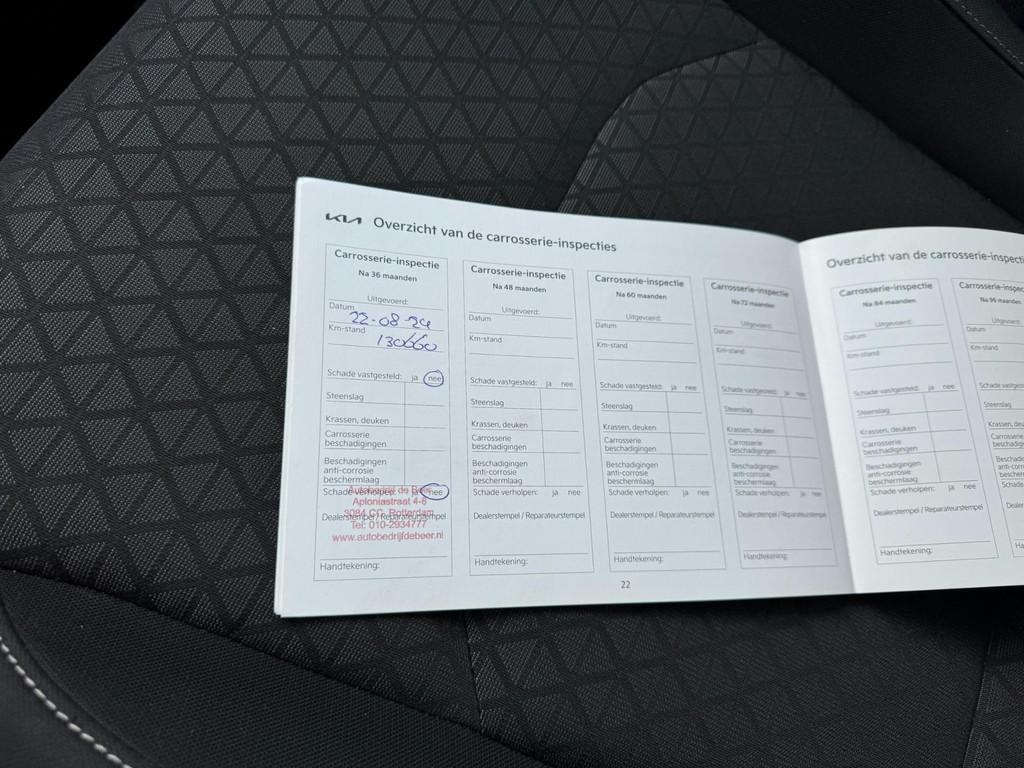 KIA Overzicht van de carrosserie-inspecties
Carrosserie-inspectie
Na 36 maanden
Uitgevoerd:
Datum
22-08-24
Km-stand
130660
Schade vastgesteld: ja nee
Steenslag
Krassen, deuken
Carrosserie
beschadigingen
Beschadigingen
anti-corrosie
beschermlaag
Schade verholpen: ja nee
Autobedrijf de Beer
Aploniastraat 4-6
3084 CC Rotterdam
Dealerstempel / Reparateurstempel
Tel: 010-2934777
www.autobedrijfdebeer.nl
Handtekening:
Carrosserie-inspectie
Na 48 maanden
Uitgevoerd:
Datum
Km-stand
Schade vastgesteld: ja nee
Steenslag
Krassen, deuken
Carrosserie
beschadigingen
Beschadigingen
anti-corrosie
beschermlaag
Schade verholpen: ja nee
Dealerstempel / Reparateurstempel
Handtekening:
Carrosserie-inspectie
Na 60 maanden
Uitgevoerd:
Datum
Km-stand
Schade vastgesteld: ja nee
Steenslag
Krassen, deuken
Carrosserie
beschadigingen
Beschadigingen
anti-corrosie
beschermlaag
Schade verholpen: ja nee
Dealerstempel / Reparateurstempel
Handtekening:
Carrosserie-inspectie
Na 72 maanden
Uitgevoerd:
Datum
Km-stand
Schade vastgesteld: ja nee
Steenslag
Krassen, deuken
Carrosserie
beschadigingen
Beschadigingen
anti-corrosie
beschermlaag
Schade verholpen: ja nee
Dealerstempel / Reparateurstempel
Handtekening:
22
Overzicht van de carrosserie-inspecti
Carrosserie-inspectie
Na 84 maanden
Uitgevoerd:
Datum
Km-stand
Schade vastgesteld: ja nee
Steenslag
Krassen, deuken
Carrosserie
beschadigingen
Beschadigingen
anti-corrosie
beschermlaag
Schade verholpen: ja nee
Dealerstempel / Reparateurstempel
Handtekening:
Carrosserie-inspec
Na 96 maan
Datum
Km-stand
Schade vastgest
Steenslag
Krassen, deu
Carrosserie
beschadig
Beschadig
anti-corro
bescherm
Schade
Dealer
Ha